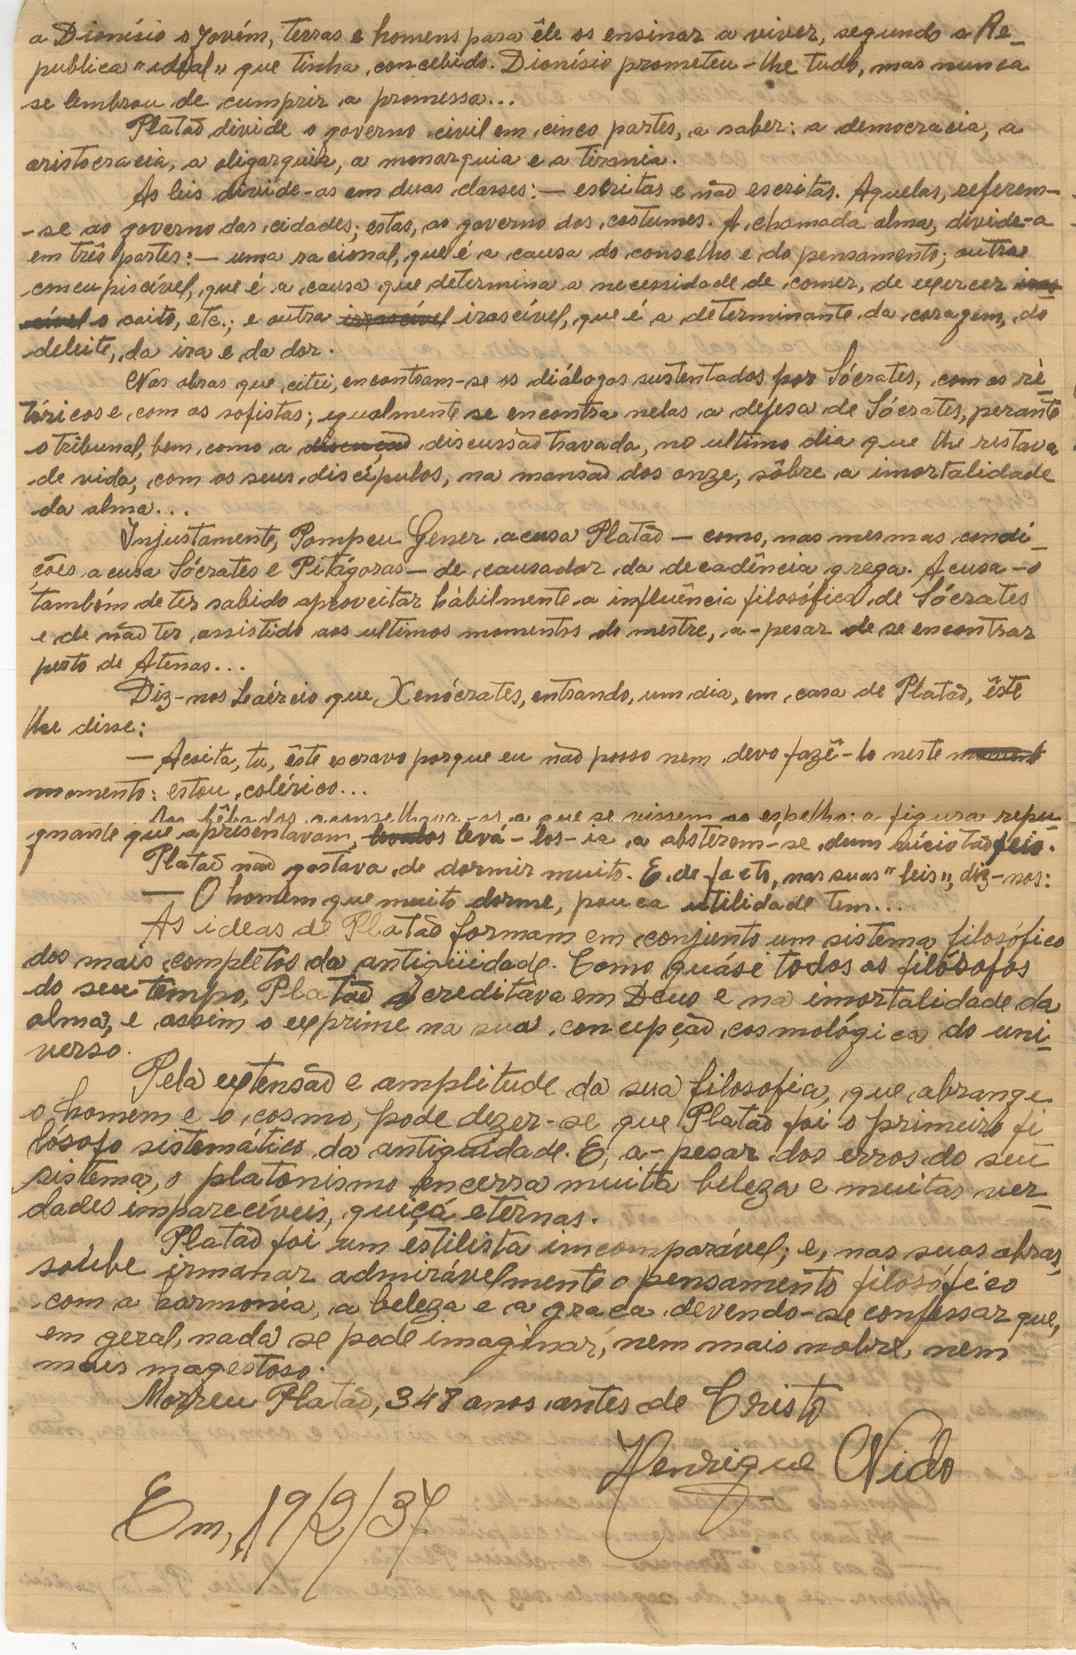 a Dionísio o Jovém, terras e homens para êle os ensinar a viver, segundo a Re-
publica "ideal" que tinha concebido. Dionísio prometeu-lhe tudo, mas nunca
se lembrou de cumprir a promessa...
Platão divide o governo civil em cinco partes, a saber: a democracia, a
aristocracia, a oligarquia, a monarquia e a tirania.
As leis divide-as em duas classes: — escritas e não escritas. Aquelas, referem-
-se ao governo das cidades; estas, ao governo dos costumes. A chamada alma, divide-a
em três partes: — uma racional, que é a causa do conselho e do pensamento; outra
concupiscível, que é a causa que determina a necessidade de comer, de exercer
o coito, etc.; e outra irrascível irascível, que é a determinante da coragem, do
deleite, da ira e da dor.
Nas obras que citei, encontram-se os diálogos sustentados por Sócrates, com os re-
tóricos e com os sofistas; igualmente se encontra nelas a defesa de Sócrates, perante
o tribunal, bem como a discução discussão travada, no ultimo dia que lhe restava
de vida, com os seus discípulos, na mansão dos onze, sôbre a imortalidade
da alma...
Injustamente, Pompeu Gener acusa Platão — como, nas mesmas condi-
ções acusa Sócrates e Pitágoras — de causador da decadência grega. Acusa-o
também de ter sabido aproveitar hàbilmente a influência filosófica de Sócrates
e de não ter assistido aos ultimos momentos do mestre, a-pesar de se encontrar
perto de Atenas...
Diz-nos Laércio que, Xenócrates, entrando, um dia, em casa de Platão, êste
lhe disse:
— Acoita, tu, êste escravo porque eu não posso nem devo fazê-lo neste momento
momento: estou colérico...
Aos bêbados aconselhava-os a que se vissem ao espelho: a figura repu-
gnante que apresentavam, levá-los-ia a absterem-se dum vício tão feio.
Platão não gostava de dormir muito. E, de-facto, nas suas "leis", diz-nos:
— O homem que muito dorme, pouca utilidade tem...
As ideas de Platão formam em conjunto um sistema filosófico
dos mais completos da antigüidade. Como quási todos os filósofos
do seu tempo, Platão acreditava em Deus e na imortalidade da
alma, e assim o exprime na sua concepção cosmológica do uni-
verso.
Pela extensão e amplitude da sua filosofia, que abrange
o homem e o cosmo, pode dezer-se que Platão foi o primeiro fi
lósofo sistemático da antiguidade. E, a-pesar dos erros do seu
sistema, o platonismo encerra muita beleza e muitas ver-
dades imparecíveis, quiçá eternas.
Platão foi um estilista imcomparável; e, nas suas obras,
soube irmanar admirávelmente o pensamento filosófico
com a harmonia, a beleza e a graca devendo-se confessar que,
em geral, nada se pode imaginar, nem mais nobre, nem
mais magestoso.
Morreu Platão, 348 anos antes de Cristo
Henrique Nido
Em, 19/2/37